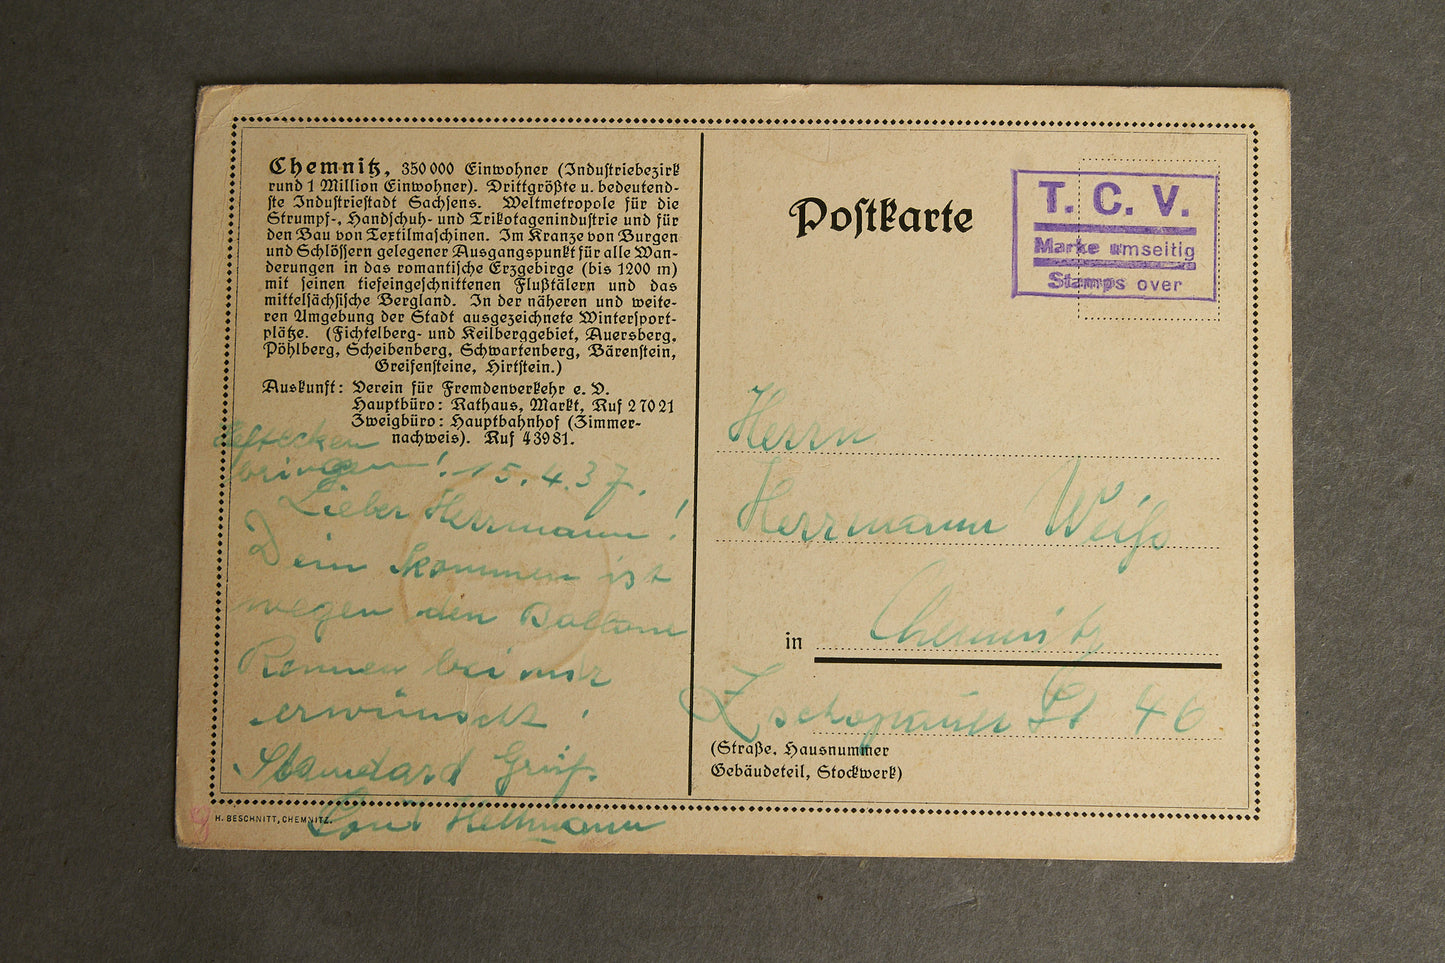 Chemnitz, 350000 Einwohner (Industriebezirk
rund 1 Million Einwohner). Drittgrößte u. bedeutend-
ste Industriestadt Sachsens. Weltmetropole für die
Strumpf-, Handschuh- und Trikotagenindustrie und für
den Bau von Textilmaschinen. Im Kranze von Burgen
und Schlössern gelegener Ausgangspunkt für alle Wan-
derungen in das romantische Erzgebirge (bis 1200 m)
mit seinen tiefeingeschnittenen Flußtälern und das
mittelsächsische Bergland. In der näheren und weite-
ren Umgebung der Stadt ausgezeichnete Wintersport-
plätze. (Fichtelberg- und Keilberggebiet, Auersberg,
Pöhlberg, Scheibenberg, Schwartenberg, Bärenstein,
Greifensteine, Hirtstein.)
Auskunft: Verein für Fremdenverkehr e. V.
Hauptbüro: Rathaus, Markt, Ruf 27021
Zweigbüro: Hauptbahnhof (Zimmer-
nachweis). Ruf 43981.
bringen! 15.4.37.
Lieber Herrmann!
Dein kommen ist
wegen den Ballone
Rennen bei mir
erwünscht!
Standard Gruß.
Hellmann
H. BESCHNITT, CHEMNITZ.
Postkarte
T. C. V.
Marke umseitig
Stamps over
Herrn
Herrmann Weiß
in Chemnitz
Zschopauer St 46
(Straße, Hausnummer
Gebäudeteil, Stockwerk)